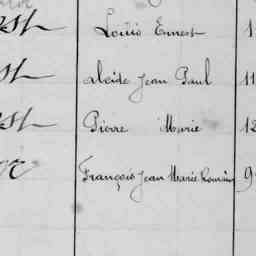 Louis Ernest 1
Alcide Jean Paul 11
Pierre Marie 12
François Jean Marie Romain 9